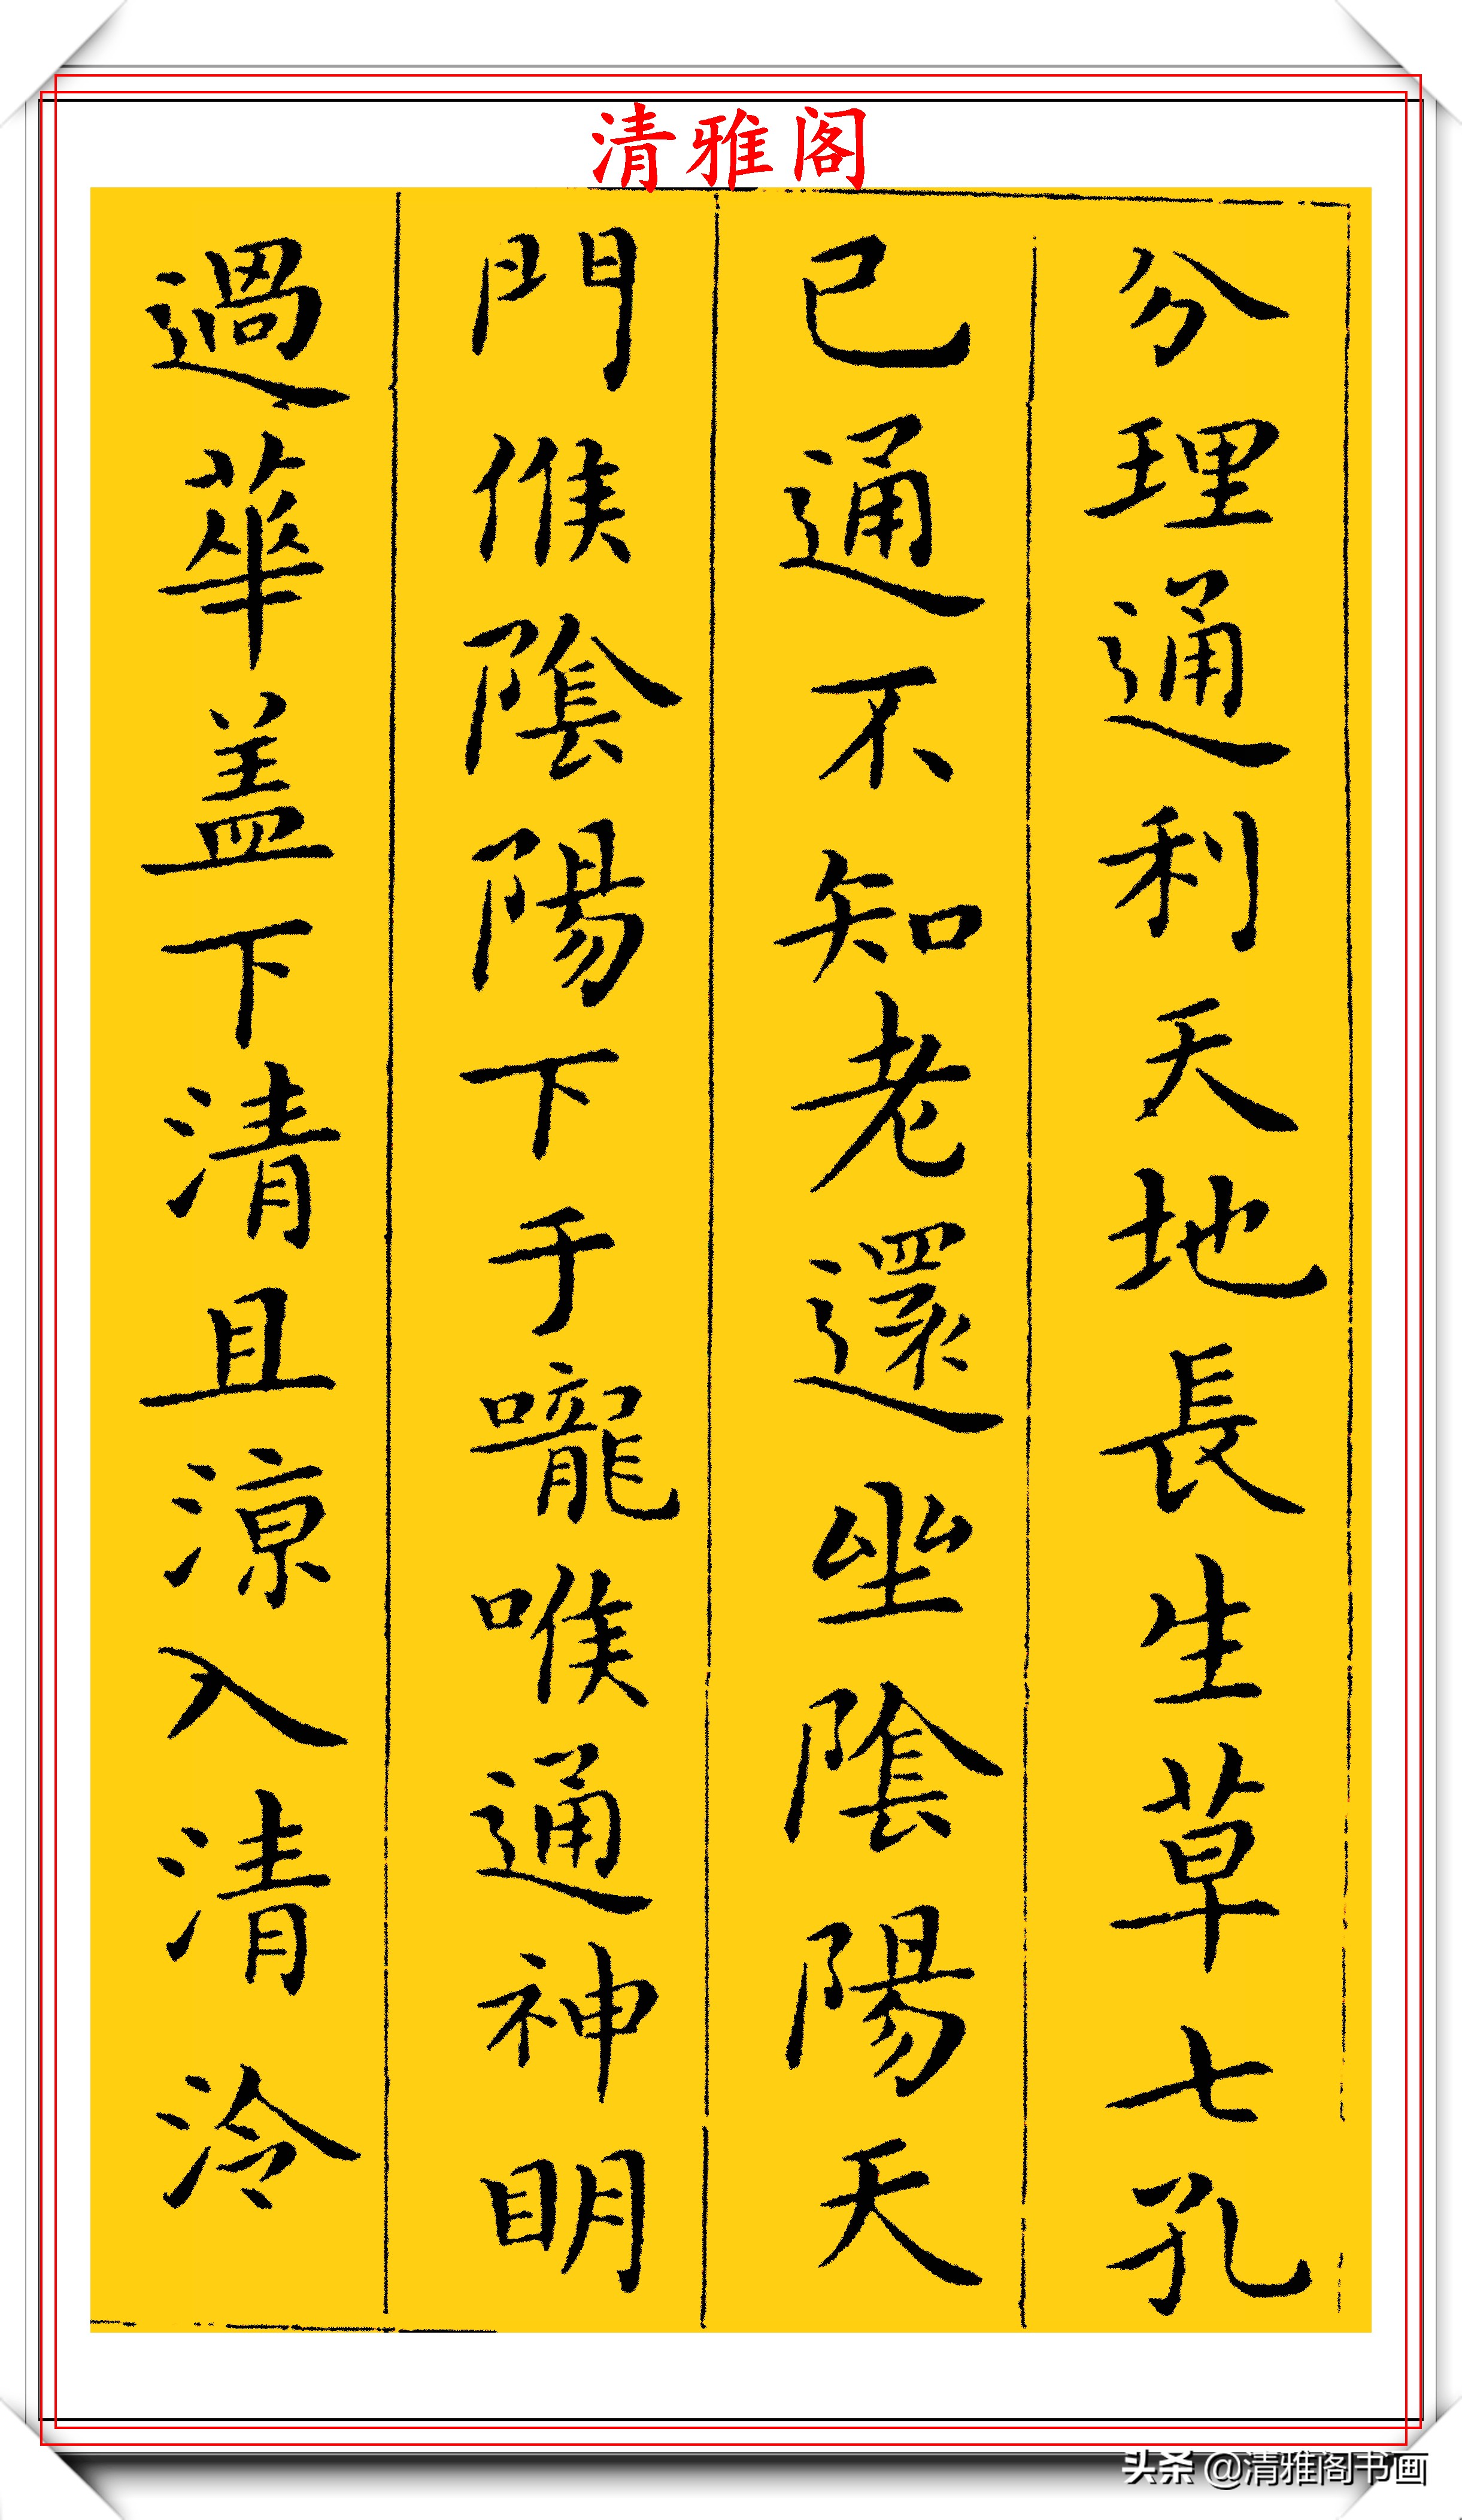 清雅阁
分理通利天地長生草七孔
已通不知老還坐陰陽天
門候陰陽下于嚨喉通神明
過華蓋下清且涼入清泠
头条 @清雅阁书画